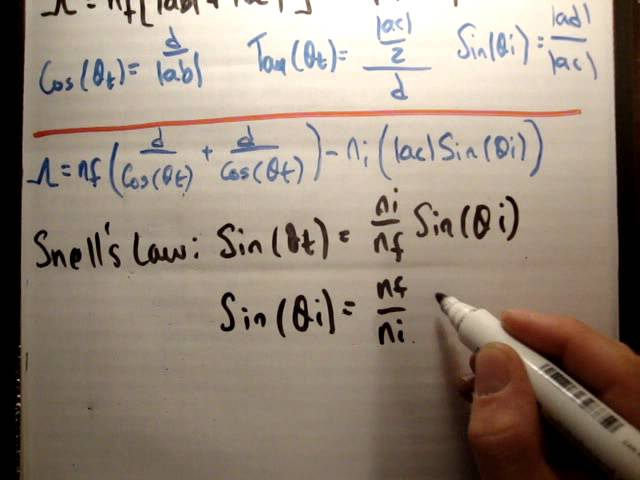 Λ = nf[|ab| + |ac|]
Cos(θt) = d/|ab| Tan(θt) = (|ac|/2)/d Sin(θi) = |ad|/|ac|
Λ = nf(d/Cos(θt) + d/Cos(θt)) - ni(|ac| Sin(θi))
Snell's Law: Sin(θt) = ni/nf Sin(θi)
Sin(θi) = nf/ni